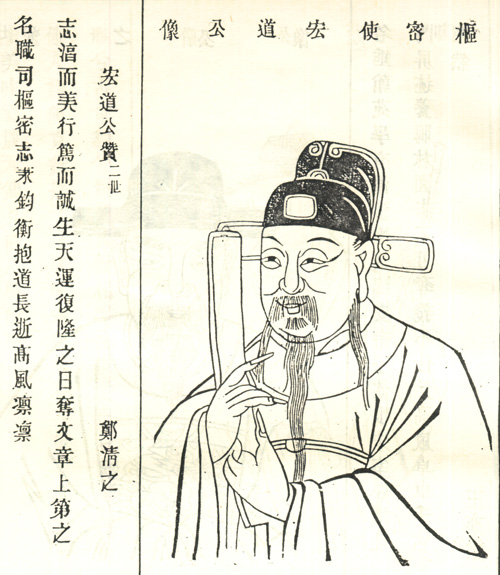 樞密使宏道公像
宏道公贊 二世 鄭清之
志而美行篤而誠生天運復隆之日奪文章上第之
名職司樞密志秉鈞衡抱道長逝高風凛凛